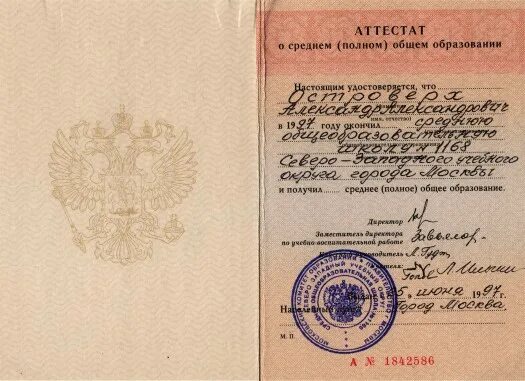 АТТЕСТАТ
о среднем (полном) общем образовании
Настоящим удостоверяется, что
Островерх
Александр Александрович
имя, отчество)
в 1997 году окончил среднюю
общеобразовательную
школу н 1168
Северо-Западного учебного
округа города Москвы
и получил среднее (полное) общее образование.
Директор
Заместитель директора
по учебно-воспитательной работе
июня 1997 г.
Город Москва
М. П.
А № 1842586